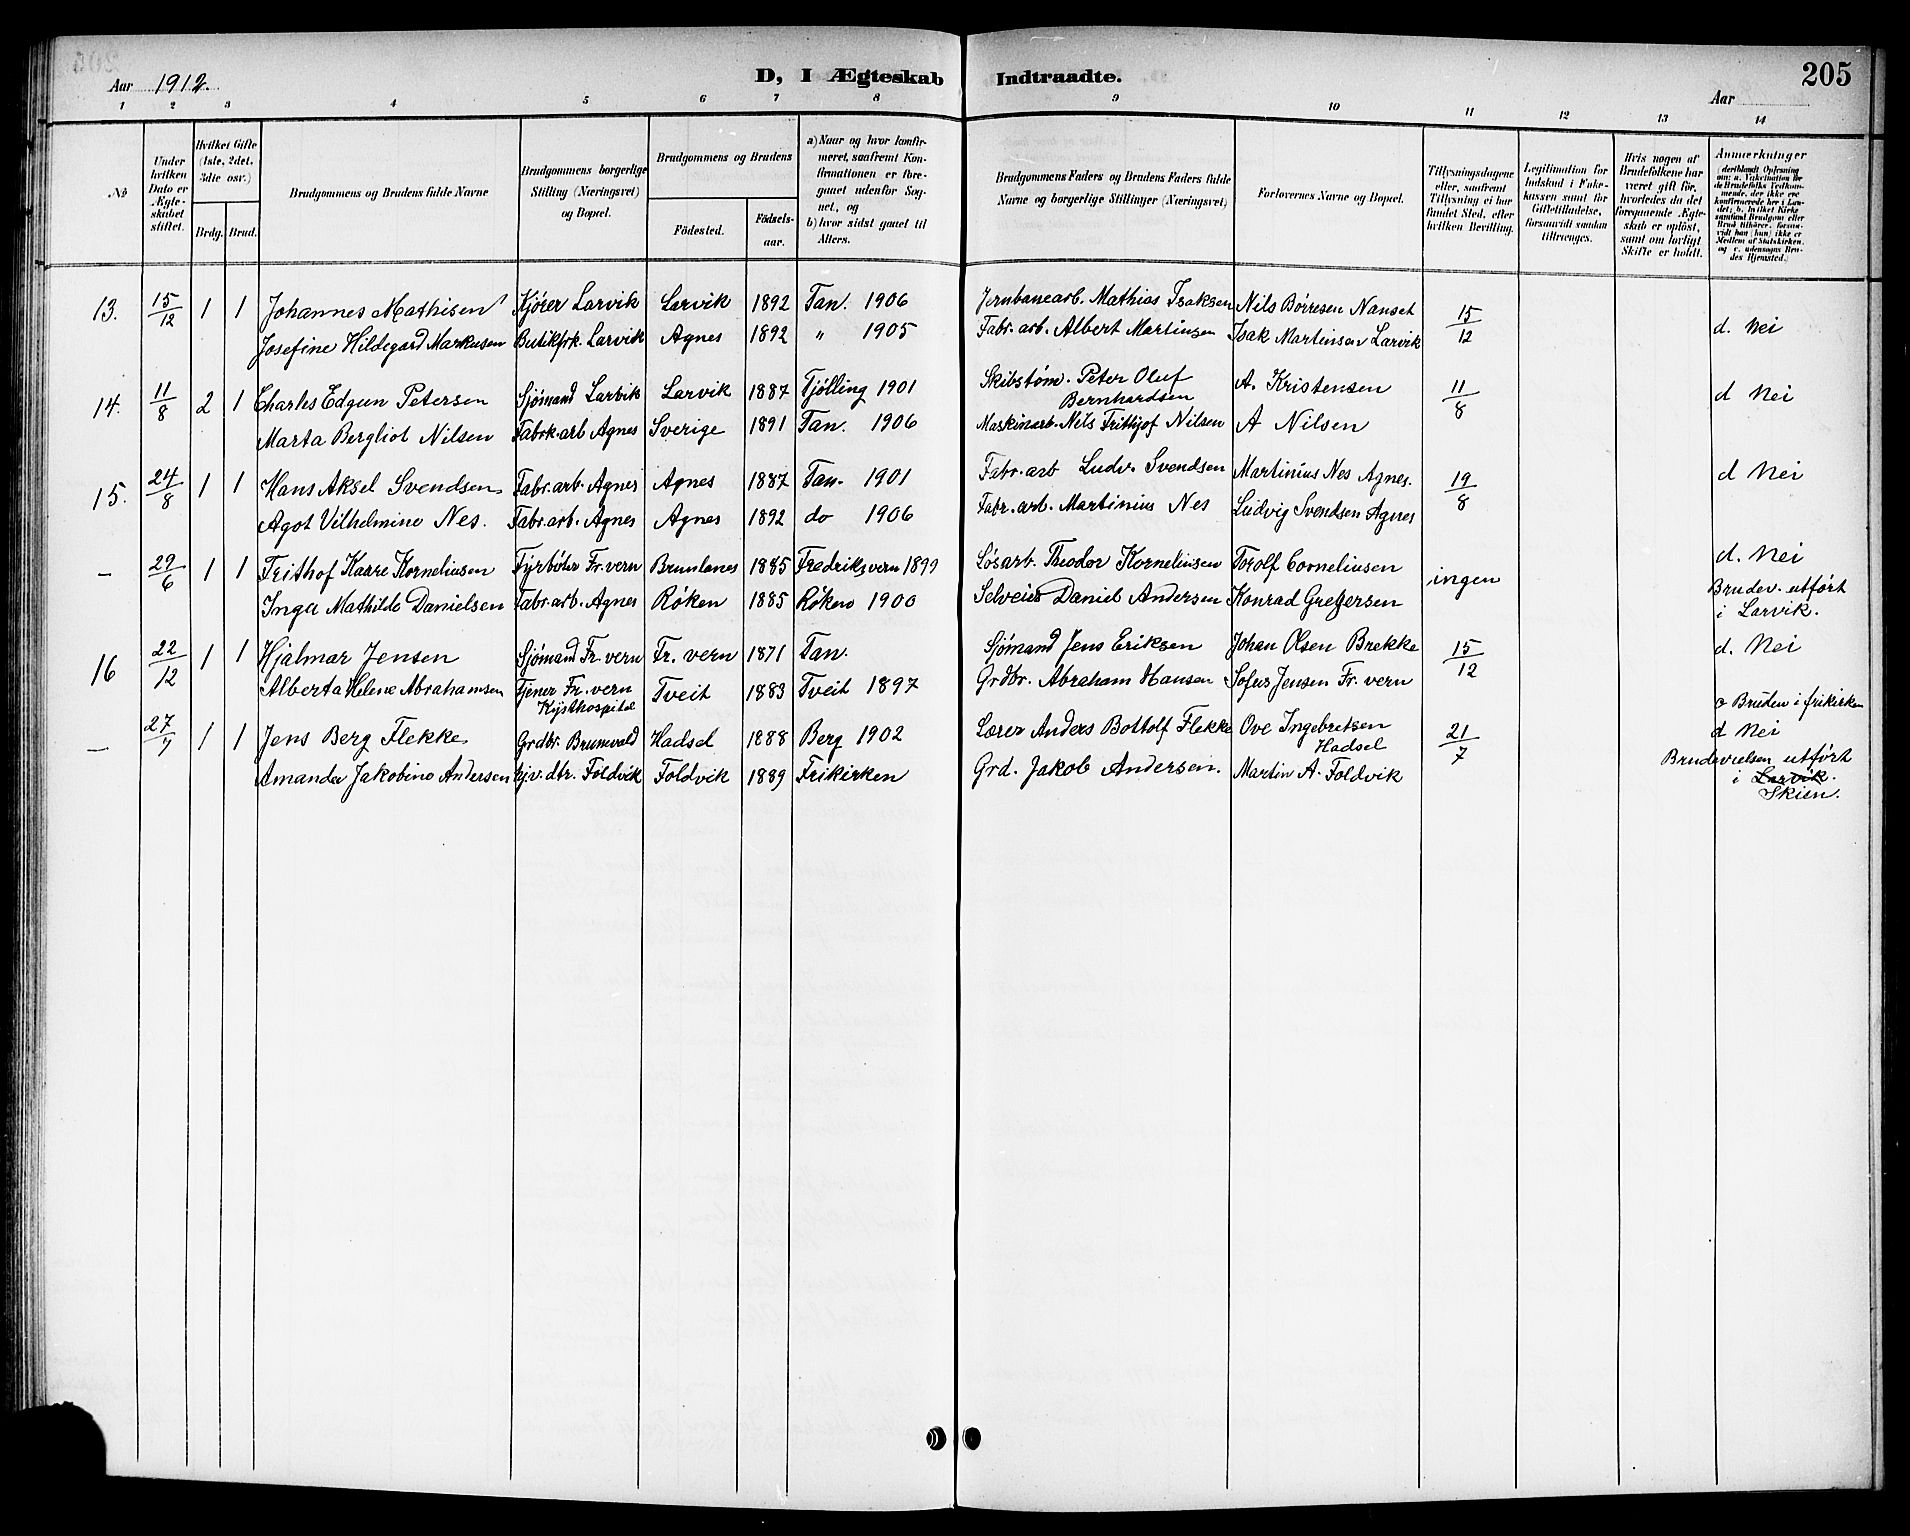 205
Aar 1912.
D, I Ægteskab Indtraadte.
Aar
1 2 3 4 5 6 7 8 9 10 11 12 13 14
№
Under hvilken Dato er Ægteskabet stiftet.
Hvilket Gifte (1ste, 2det, 3die osv.)
Brdg. Brud.
Brudgommens og Brudens fulde Navne
Brudgommens borgerlige Stilling (Næringsvei) og Bopæl.
Brudgommens og Brudens
Födested.
Födselsaar.
a) Naar og hvor konfirmeret, saafremt Konfirmationen er foregaaet udenfor Sognet, og
b) hvor sidst gaaet til Alters.
Brudgommens Faders og Brudens Faders fulde Navne og borgerlige Stillinger (Næringsvei)
Forlovernes Navne og Bopæl.
Tillysningsdagene eller, saafremt Tillysning ei har fundet Sted, efter hvilken Bevilling.
Legitimation for Indskud i Enkekassen samt for Giftetilladelse, forsaavidt saadan tiltrænges.
Hvis nogen af Brudefolkene har været gift för, hvorledes da det foregaaende Ægteskab er oplöst, samt om lovligt Skifte er holdt.
Anmerkninger
13. 15/12 1 1 Johannes Mathisen Kjører Larvik Larvik 1892 Tan. 1906 Jernbanearb. Mathias Isaksen Nils Børresen Nanset 15/12
Josefine Hildegard Markusen Butikfrk. Larvik Agnes 1892 " 1905 Fabr. arb. Albert Martinsen Isak Martinsen Larvik d. Nei
14. 11/8 2 1 Charles Edgun Petersen Sjømand Larvik Larvik 1887 Tjølling 1901 Skibstøm. Peter Oluf Bernhardsen A. Kristensen 11/8 d Nei
Marta Bergliot Nilsen Fabrk. arb Agnes Sverige 1891 Tan. 1906 Maskinarb. Nils Frithjof Nilsen A Nilsen
15. 24/8 1 1 Hans Aksel Svendsen Fabr. arb. Agnes Agnes 1887 Tan. 1901 Fabr. arb Ludv. Svendsen Martinius Nes Agnes. 19/8 d Nei
Agot Vilhelmine Nes. Fabr. arb. Agnes Agnes 1892 do 1906 Fabr. arb. Martinius Nes Ludvig Svendsen Agnes
— 29/6 1 1 Frithof Kaare Korneliusen Fyrbøter Fr. vern Brunlanes 1885 Fredriksvern 1899 Løsarb. Theodor Korneliusen Torolf Corneliusen ingen d. Nei
Inga Mathilde Danielsen Fabr. arb. Agnes Røken 1885 Røken 1900 Selveier Daniel Andersen Konrad Gregersen Brudev. utført i Larvik.
16 22/12 1 1 Hjalmar Jensen Sjømand Fr. vern Fr. vern 1871 Tan. Sjømand Jens Eriksen Johan Olsen Brekke 15/12 d. Nei
Alberta Helene Abrahamsen Tjener Fr. vern Kysthospital Tveit 1883 Tveit 1897 Grdbr. Abraham Hansen Sofus Jensen Fr. vern c Bruden i frikirken
— 27/7 1 1 Jens Berg Flekke Grdbr. Brunvald Hadsel 1888 Berg 1902 Lærer Anders Bottolf Flekke Ove Ingebretsen Hadsel 21/7 d Nei
Amanda Jakobine Andersen hjv. dtr. Foldvik Foldvik 1889 Frikirken Grd. Jakob Andersen. Martin A. Foldvik Brudevielsen utført i Larvik. Skien.